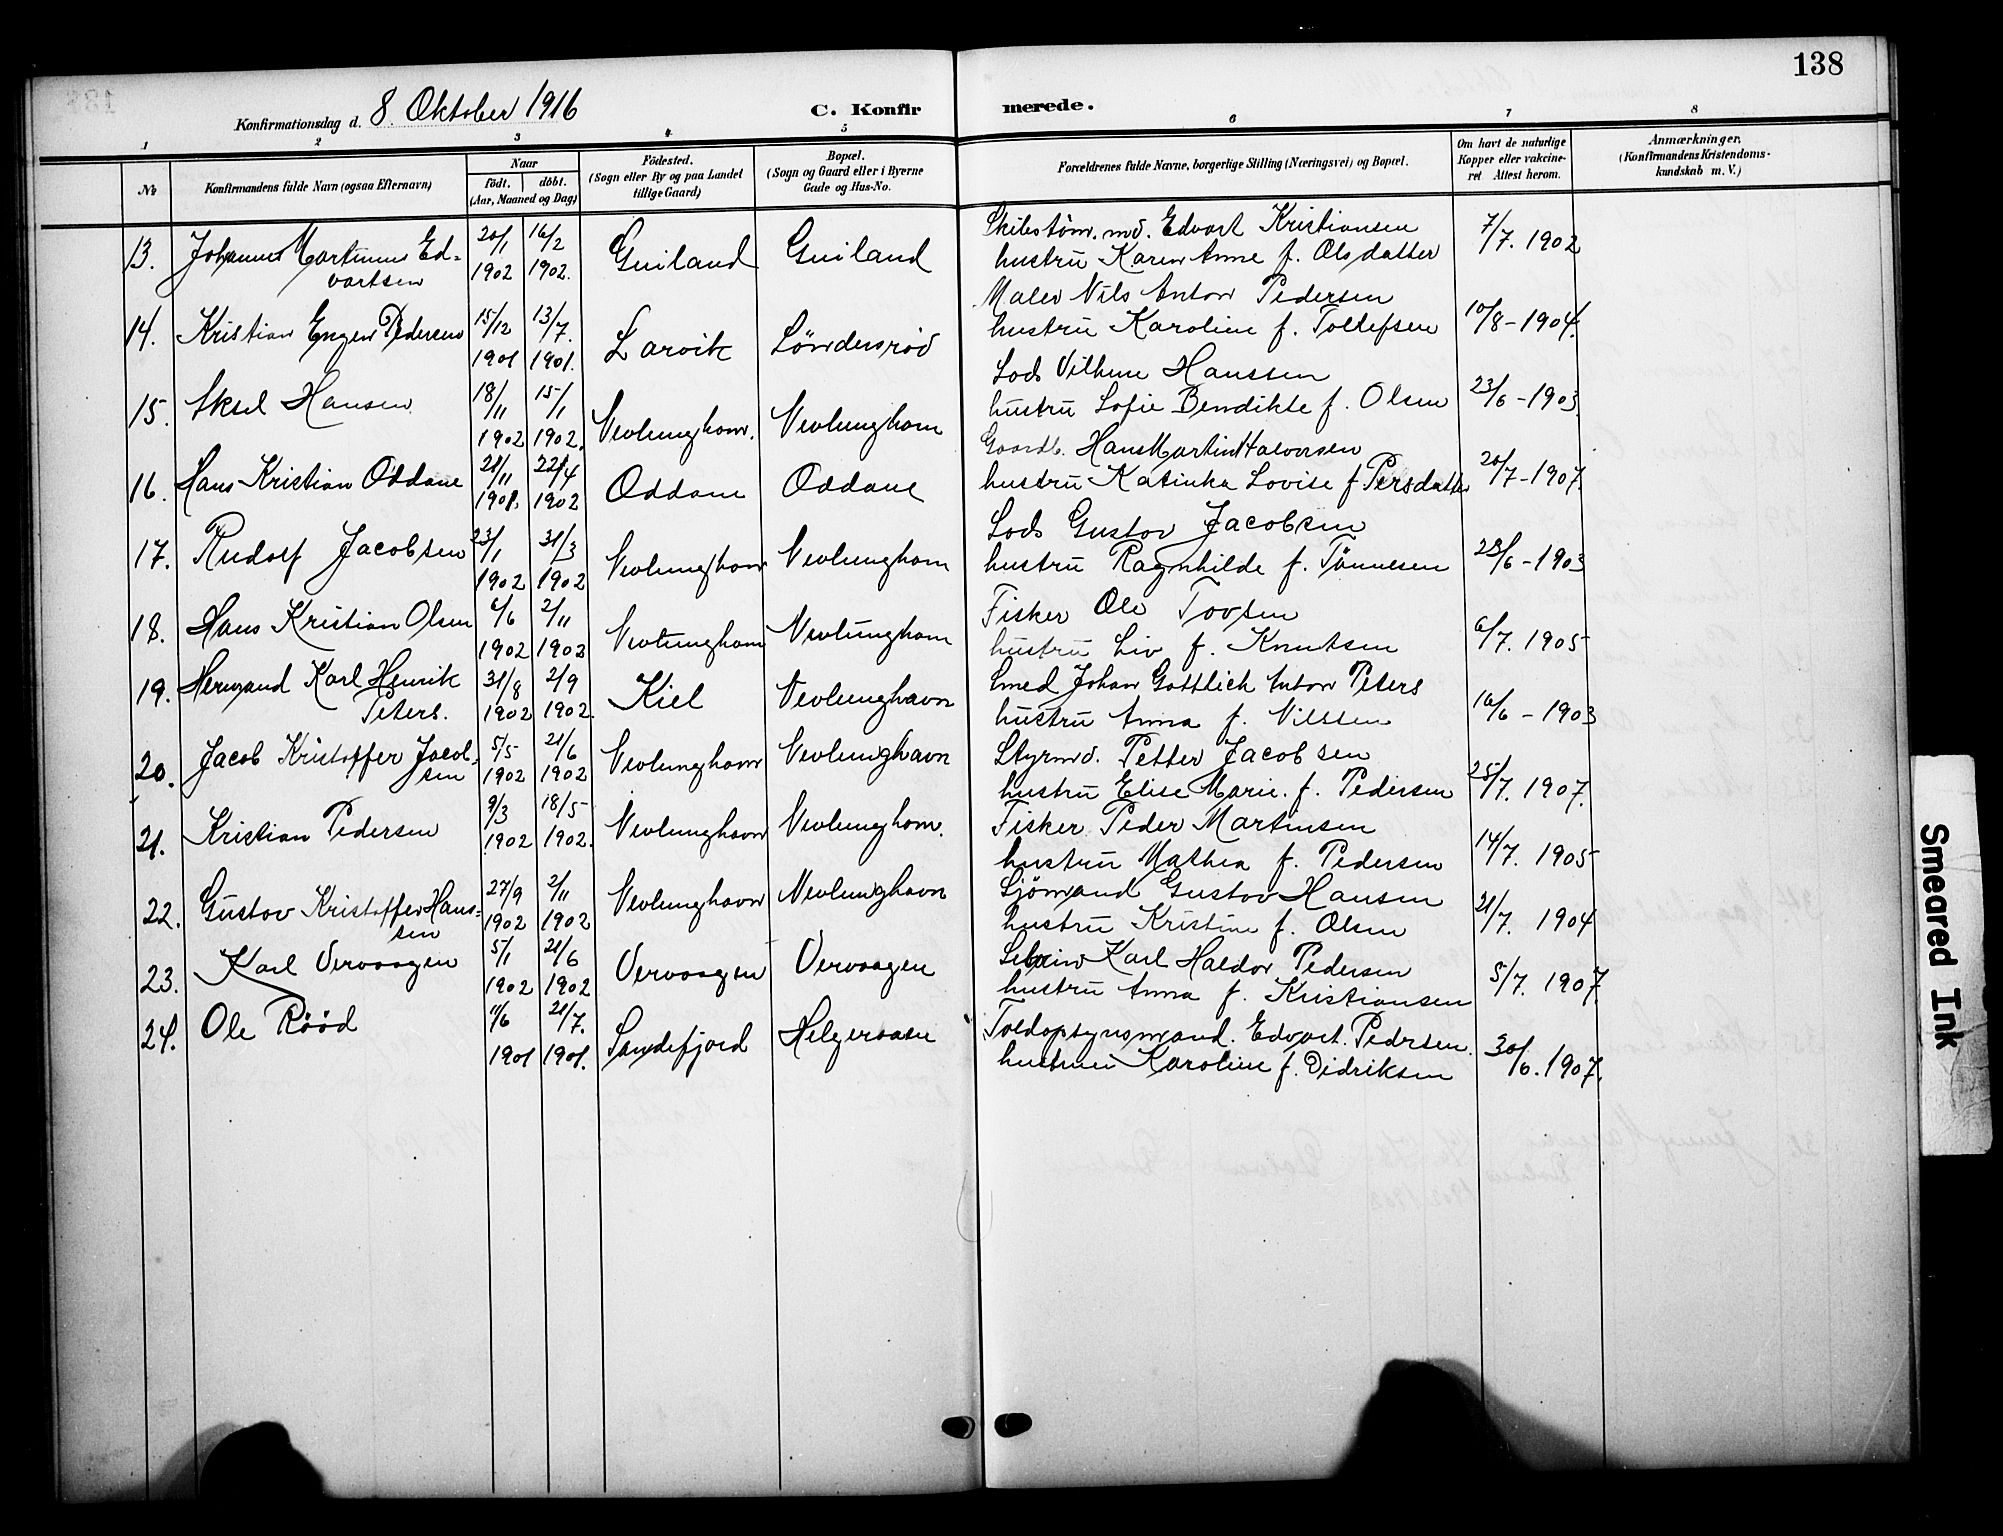 138
Konfirmationsdag d. 8. Oktober 1916
C. Konfirmerede.
1 2 3 4 5 6 7 8
No
Konfirmandens fulde Navn (ogsaa Efternavn)
Naar
födt. döbt.
(Aar, Maaned og Dag)
Födested.
(Sogn eller By og paa Landet
tillige Gaard)
Bopæl.
(Sogn og Gaard eller i Byerne
Gade og Hus-No.
Forældrenes fulde Navne, borgerlige Stilling (Næringsvei) og Bopæl.
Om havt de naturlige
Kopper eller vakcine-
ret Attest herom.
Anmærkninger.
(Konfirmandens Kristendoms-
kundskab m. V.)
13. Johannes Martinius Ed=
vartsen
20/1 1902 16/2 1902. Guiland Guiland
Skibstöm. md. Edvart Kristiansen
hustru Karen Anne f. Olsdatter
7/7. 1902
14. Kristian Engen Pedersen 15/12 1901 13/7. 1901. Larvik Söndersröd
Maler Nils Anton Pedersen
hustru Karoline f. Tollefsen
10/8 - 1904.
15. Aksel Hansen 18/11 1902 15/1 1902. Nevlunghavn. Nevlunghavn
Lods Vilhem Hanssen
hustru Sofie Bendikte f. Olsen
23/6 - 1903
16. Hans Kristian Oddane 21/11 1901. 22/4 1902 Oddane Oddane
Gaardb. Hans Martin Halvorsen
hustru Katinka Lovise f. Persdatter
20/7 - 1907.
17. Rudolf Jacobsen 23/1 1902 31/3 1902 Nevlunghavn Nevlunghavn
Lods Gustav Jacobsen
hustru Ragnhilde f. Tönnesen
23/6 - 1903
18. Hans Kristian Olsen 6/6 1902 2/11 1902 Nevlunghavn Nevlunghavn
Fisker Ole Tovsen
hustru Liv f. Knutsen
6/7. 1905
19. Hermand Karl Henrik
Peters.
31/8 1902 2/9 1902. Kiel Nevlunghavn
Smed Johan Gottlich Anton Peters
hustru Anna f. Nilssen
16/6 - 1903
20. Jacob Kristoffer Jacob-
sen
5/5 1902 21/6 1902 Nevlunghavn Nevlunghavn
Styrmd. Petter Jacobsen
hustru Elise Marie. f. Pedersen
25/7. 1907.
21. Kristian Pedersen 9/3 1902 18/5 1902. Nevlunghavn Nevlunghavn.
Fisker Peder Martinsen
hustru Mathea f. Pedersen
14/7. 1905
22. Gustav Kristoffer Hans=
sen
27/9 1902 2/11 1902 Nevlunghavn Nevlunghavn
Sjömand Gustav Hansen
hustru Kristine f. Olsen
21/7. 1904
23. Karl Vervaagen 5/1 1902 21/6 1902 Vervaagen Vervaagen
Karl Haldor Pedersen
hustru Anna f. Kristiansen
5/7. 1907.
24. Ole Rööd 11/6 1901 21/7. 1901. Sandefjord Helgeroaen
Toldopsynsmand. Edvart. Pedersen.
hustruen Karoline f. Didriksen
30/6. 1907.
Smeared Ink